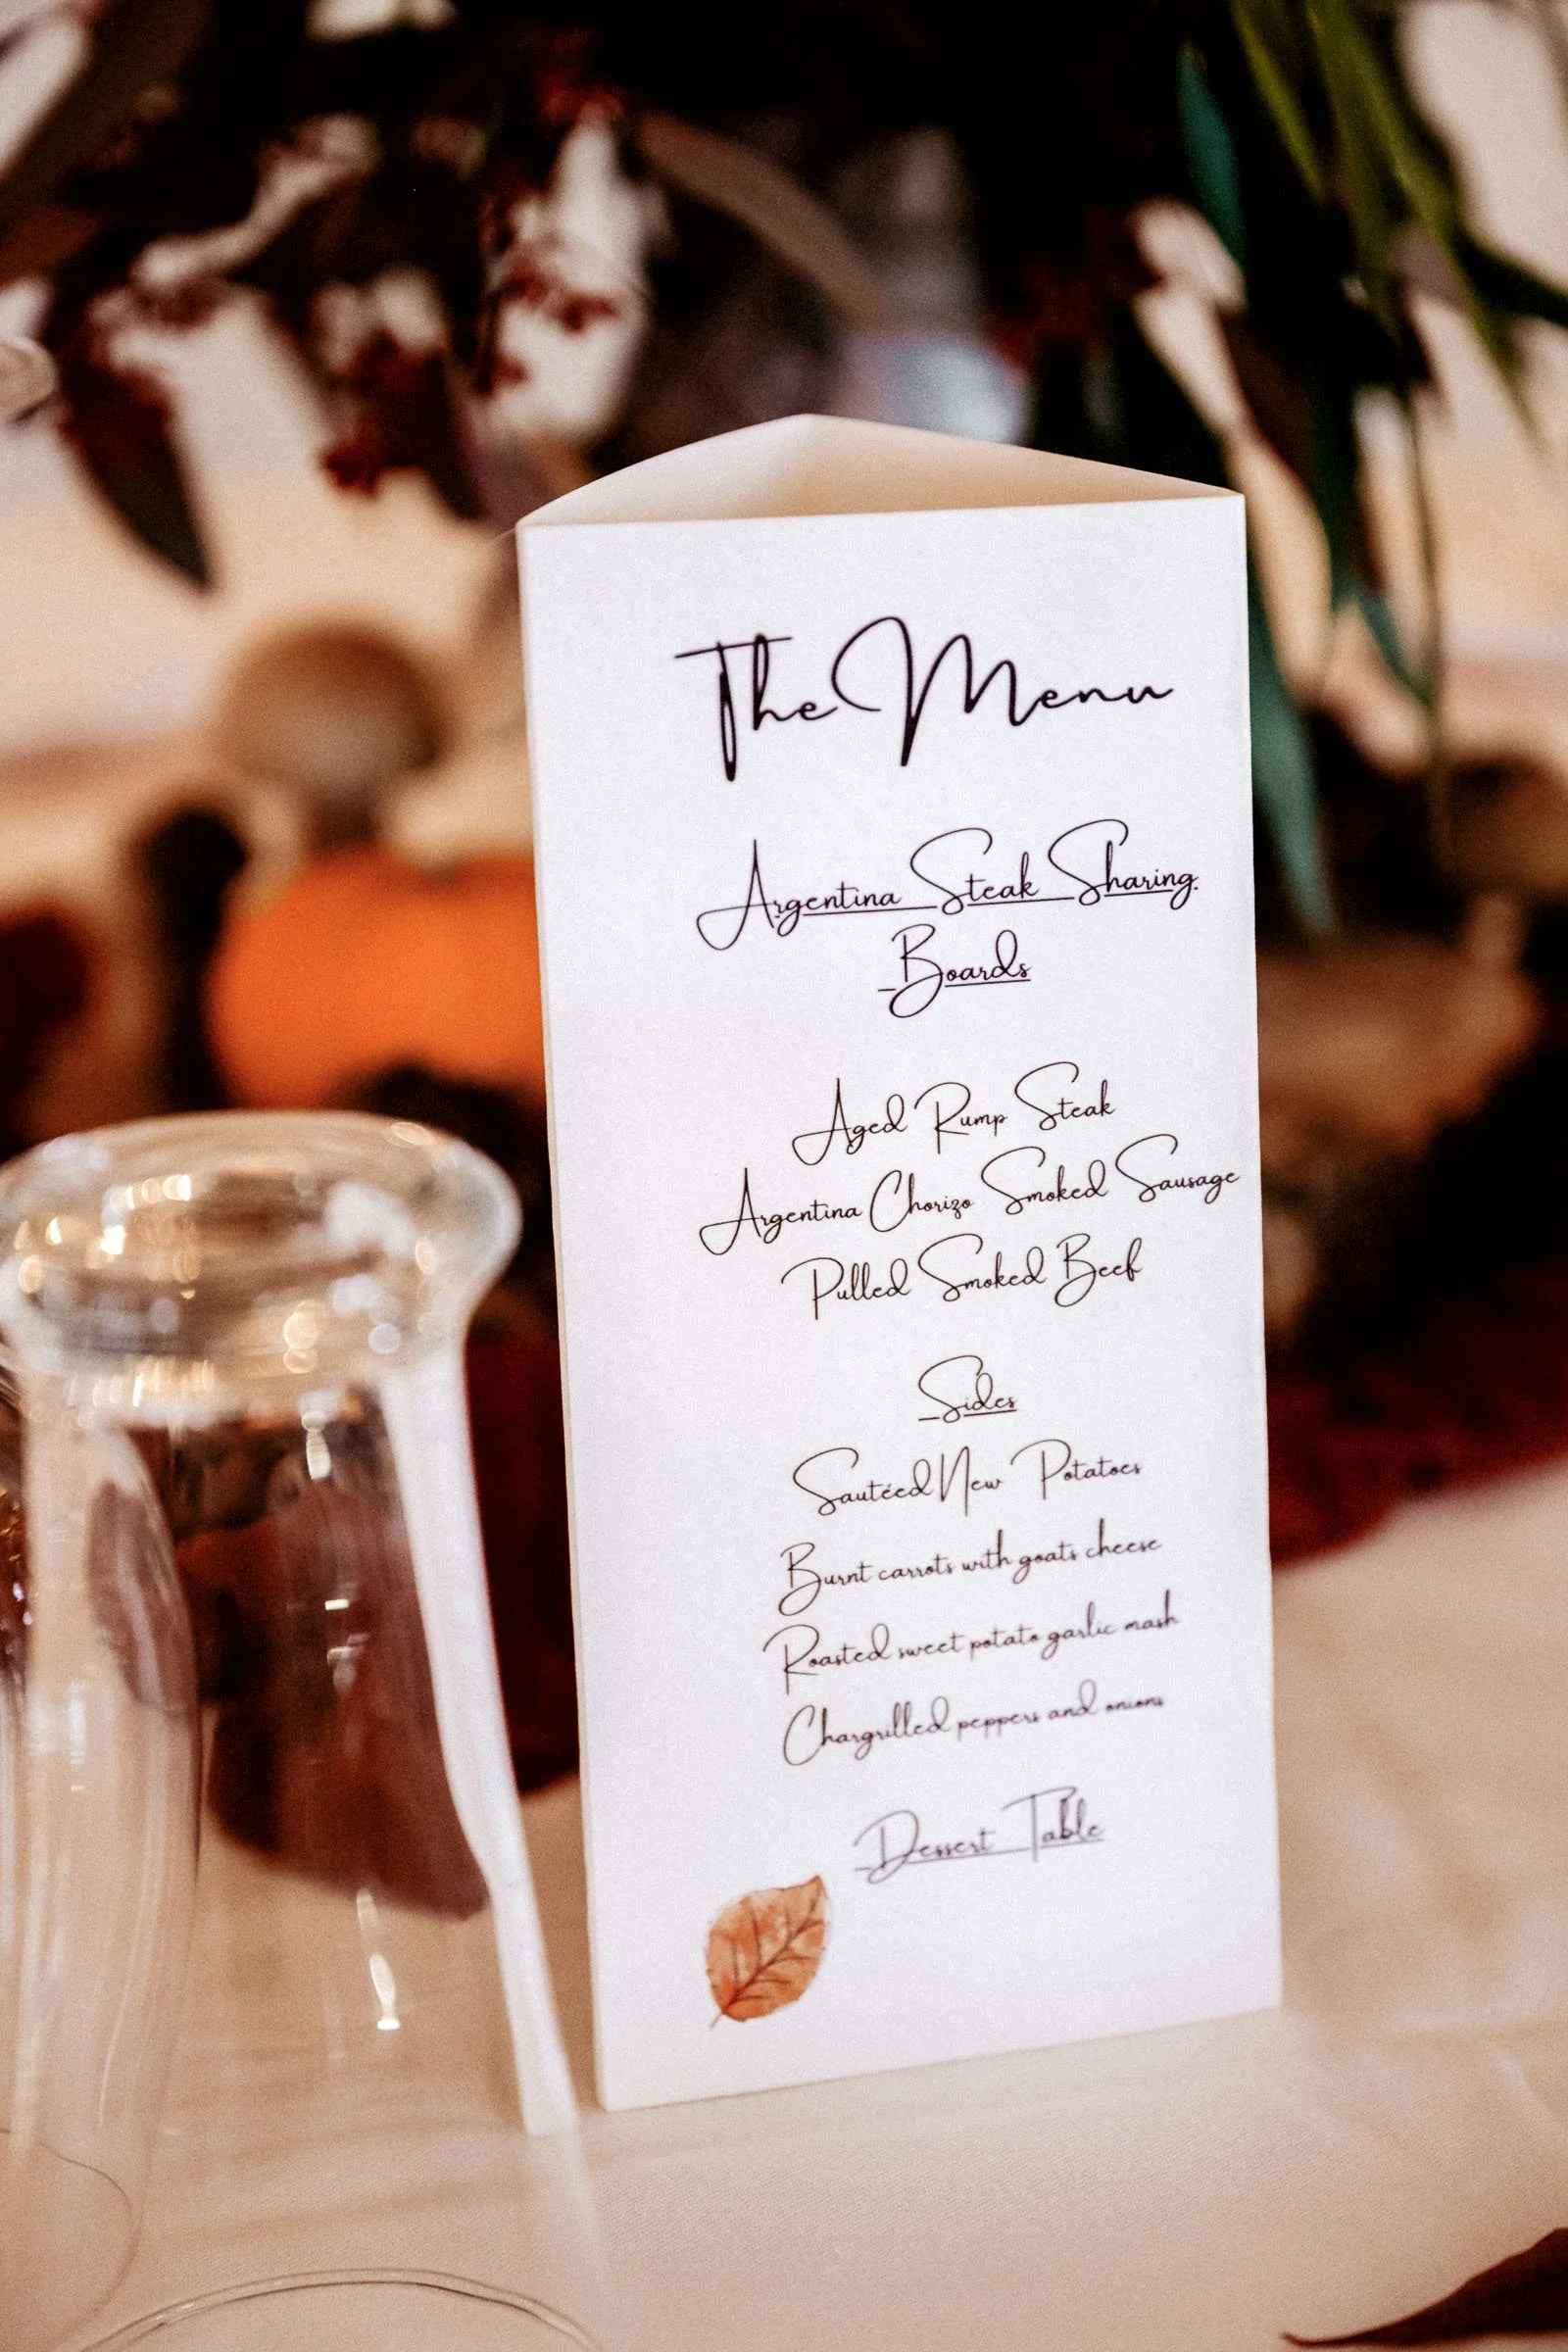 The Menu
Argentina Steak Sharing
Boards
Aged Rump Steak
Argentina Chorizo Smoked Sausage
Pulled Smoked Beef
Sides
Sautéed New Potatoes
Burnt carrots with goats cheese
Roasted sweet potato garlic mash
Chargrilled peppers and onions
Dessert Table